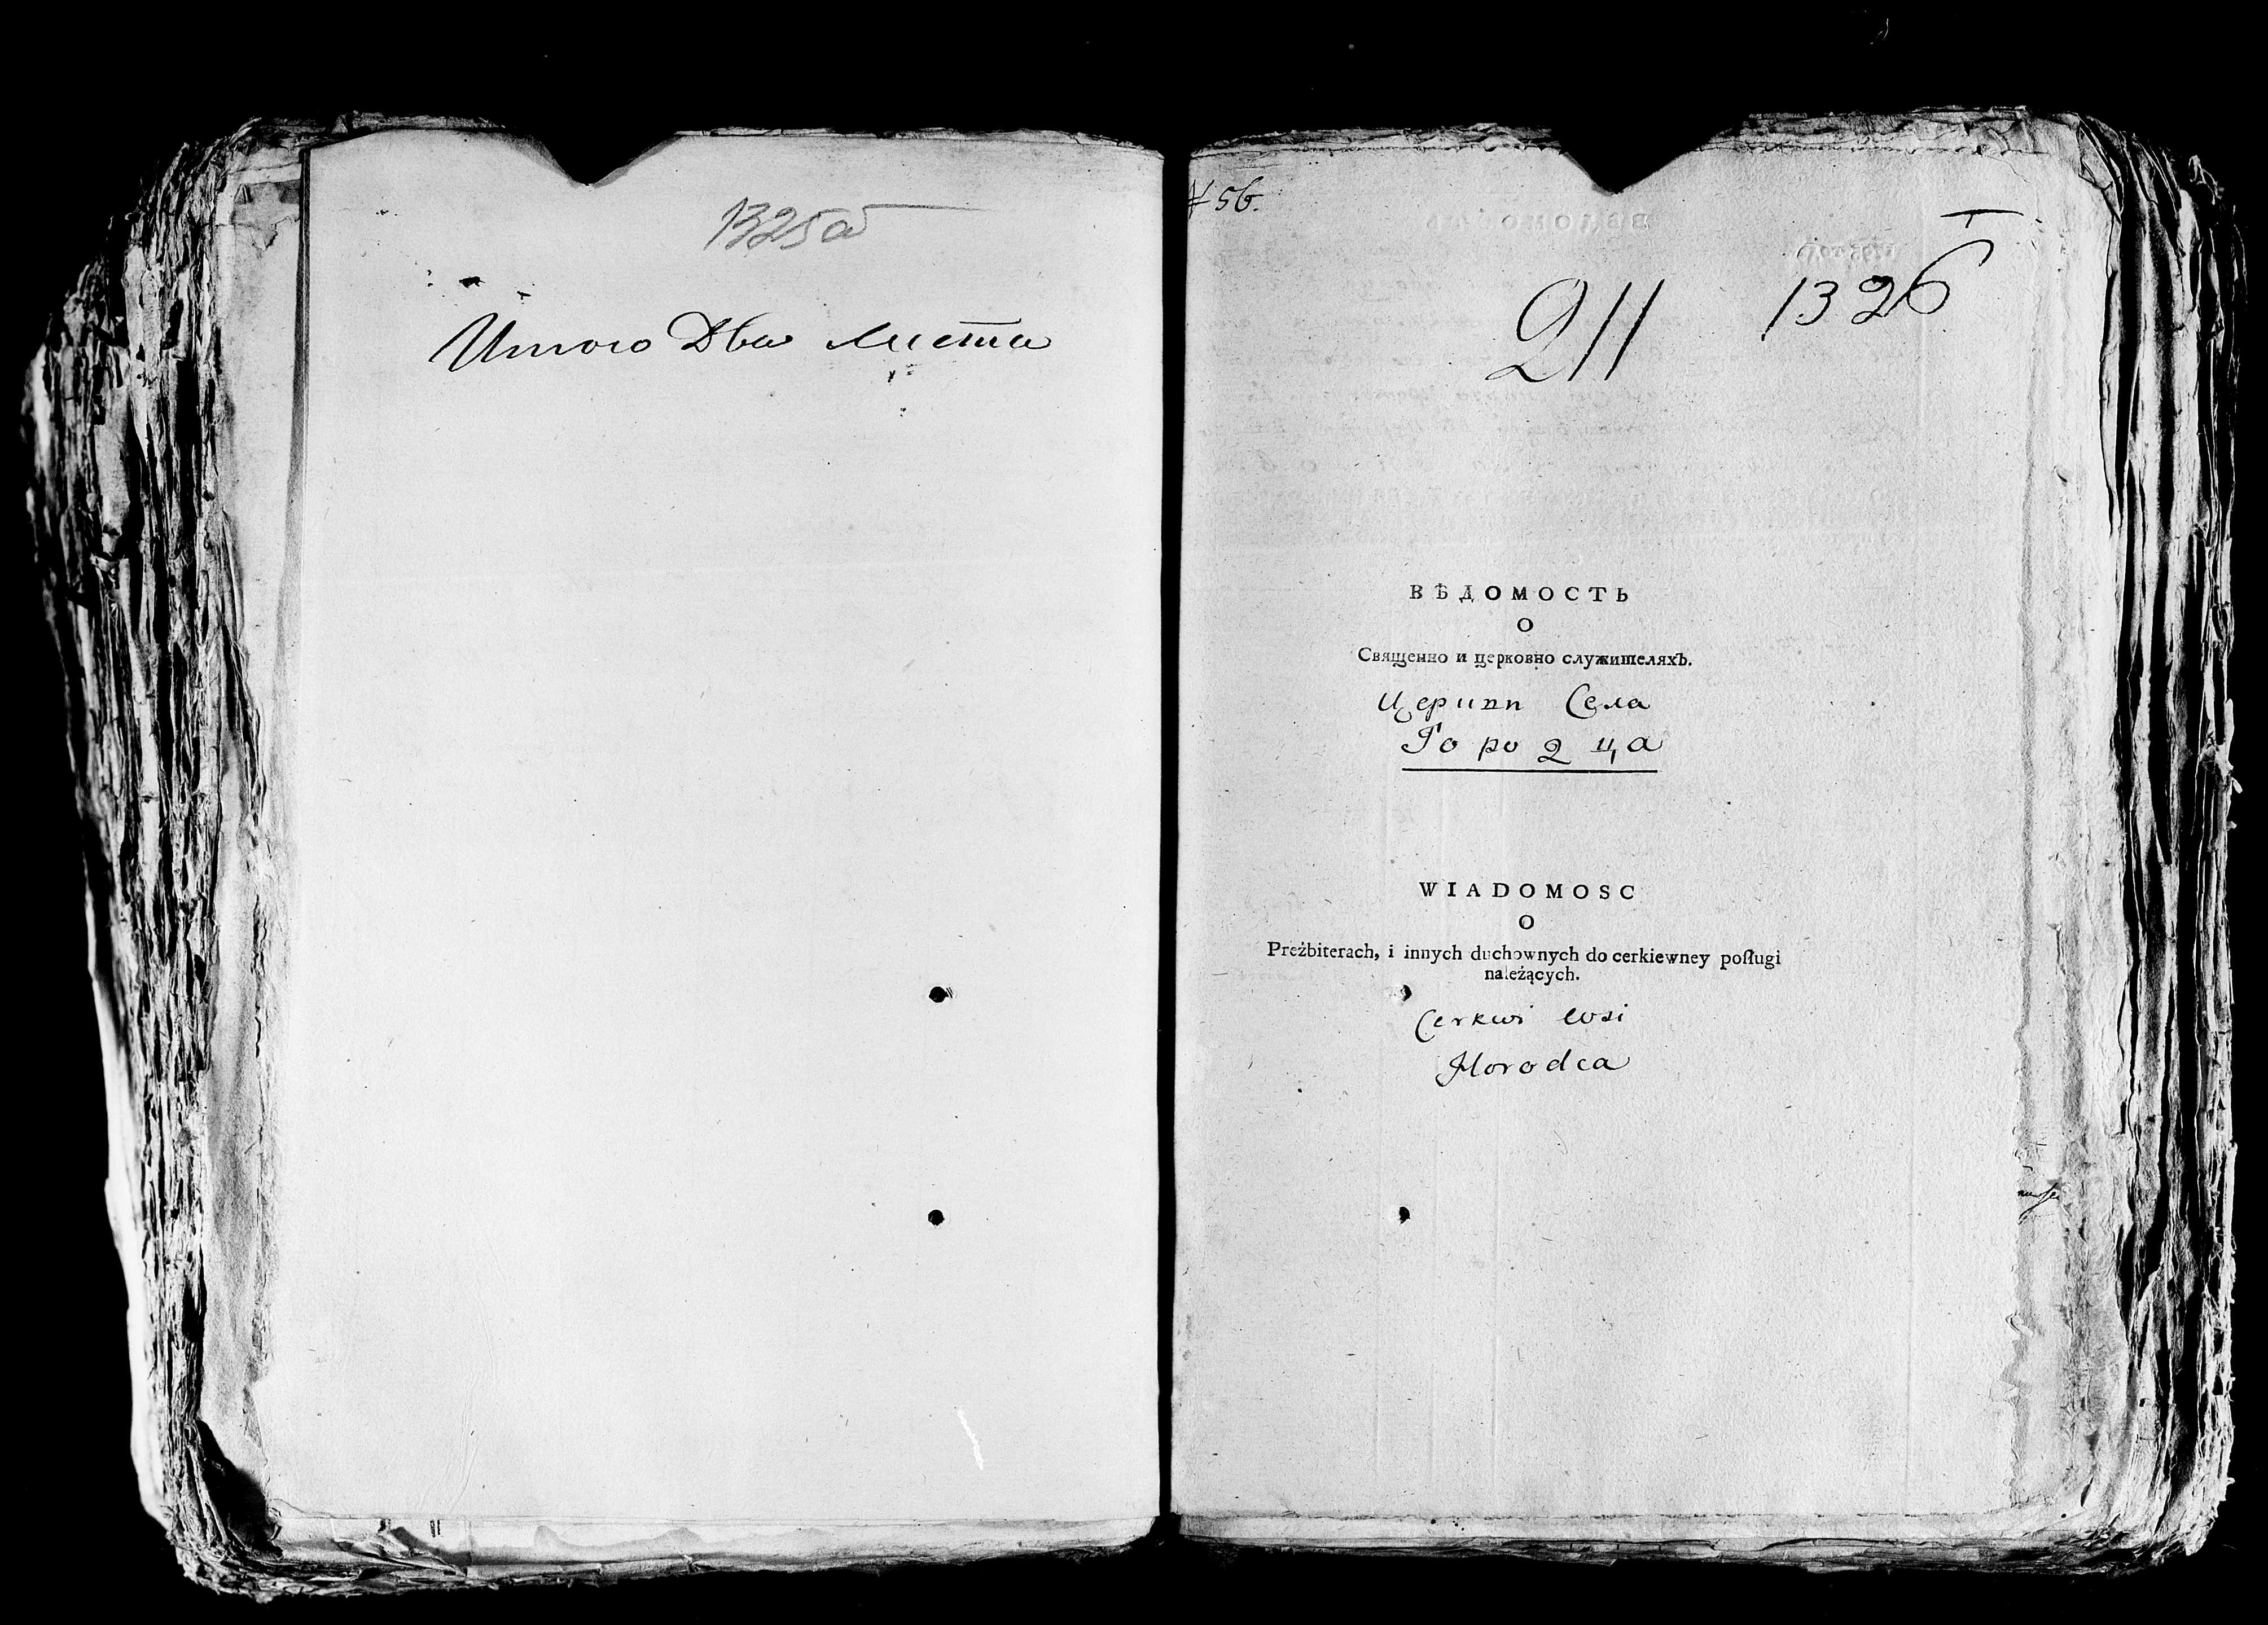 1325а
Итого Два листа
№ 56.
211 1326
ВѢДОМОСТЬ
О
Священно и церковно служителяхЪ.
Церкви Села
Городца
WIADOMOSC
O
Preżbiterach, i innych duchownych do cerkiewney poſługi
należących.
Cerkwi wsi
Horodca